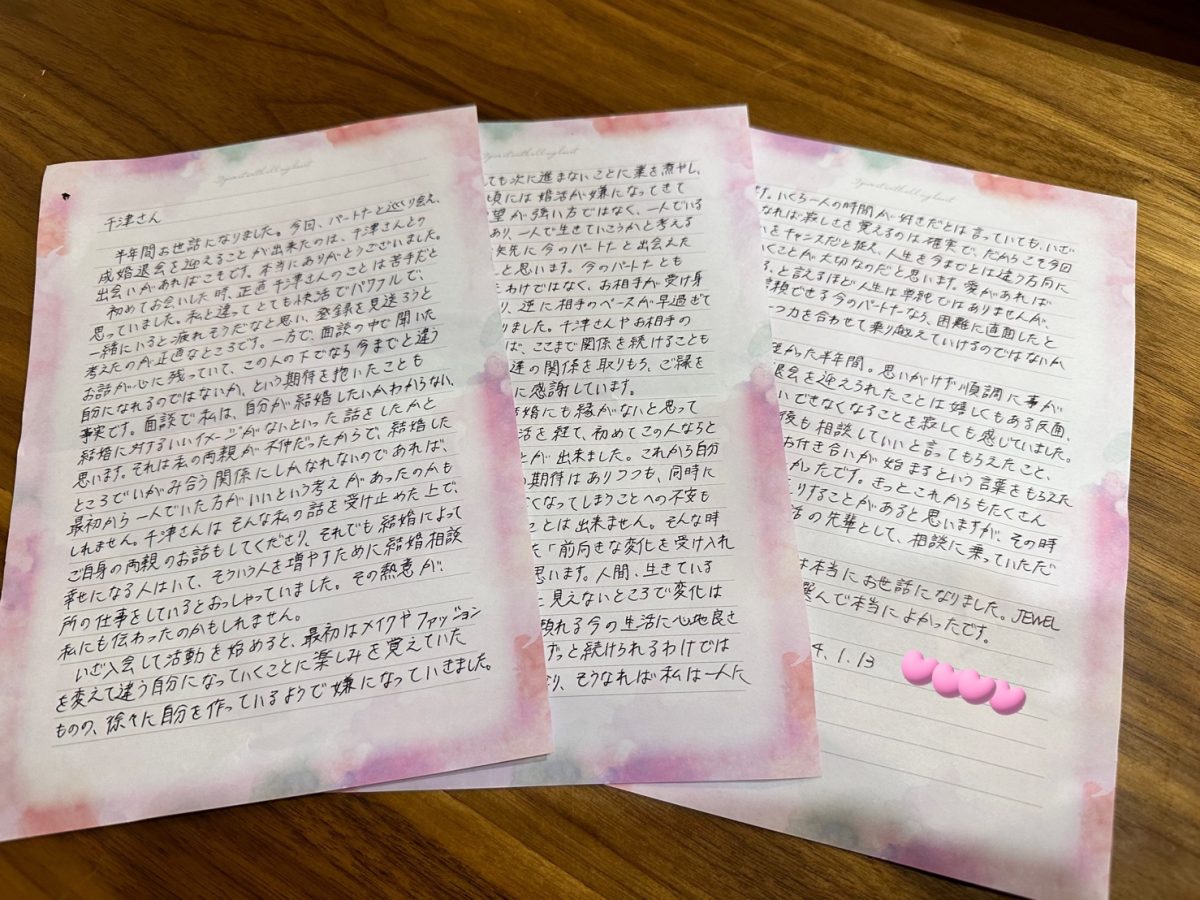 千津さん
半年間お世話になりました。今回、パートナーと巡り会え、
成婚退会を迎えることが出来たのは、千津さんとの
出会いがあればこそです。本当にありがとうございました。
初めてお会いした時、正直千津さんのことは苦手だと
思っていました。私と違ってとても快活でパワフルで、
一緒にいると疲れそうだなと思い、登録を見送ろうと
考えたのが正直なところです。一方で、面談の中で聞いた
お話が心に残っていて、この人の下でなら今までと違う
自分になれるのではないか、という期待を抱いたことも
事実です。面談で私は、自分が結婚したいかわからない、
結婚に対するいいイメージがないといった話をしたかと
思います。それは私の両親が不仲だったからで、結婚した
ところでいがみ合う関係にしかなれないのであれば、
最初から一人でいた方がいいという考えがあったのかも
しれません。千津さんはそんな私の話を受け止めた上で、
ご自身の両親のお話もしてくださり、それでも結婚によって
幸せになる人はいて、そういう人を増やすために結婚相談
所の仕事をしているとおっしゃっていました。その熱意が、
私にも伝わったのかもしれません。
いざ入会して活動を始めると、最初はメイクやファッション
を変えて違う自分になっていくことに楽しみを覚えていた
ものの、徐々に自分を作っているようで嫌になっていきました。
ても次に進まないことに業を煮やし、
頃には婚活が嫌になってきて
望が強い方ではなく、一人でいる
あり、一人で生きていこうかと考える
矢先に今のパートナーと出会えた
と思います。今のパートナーとも
わけではなく、お相手が受け身
り、逆に相手のペースが早過ぎて
りました。千津さんやお相手の
ば、ここまで関係を続けることも
達の関係を取りもち、ご縁を
に感謝しています。
結婚にも縁がないと思って
活を経て、初めてこの人ならと
とが出来ました。これから自分
期待はありつつも、同時に
くなってしまうことへの不安も
ことは出来ません。そんな時
た「前向きな変化を受け入れ
思います。人間、生きている
と見えないところで変化は
頼れる今の生活に心地良さ
ずっと続けられるわけでは
り、そうなれば私は一人に
す。いくら一人の時間が好きだとは言っていても、いざ
なれば寂しさを覚えるのは確実で、だからこそ今回
をチャンスだと捉え、人生を今までとは違う方向に
いくことが大切なのだと思います。愛があれば
る、と言えるほど人生は単純ではありませんが、
信頼できる今のパートナーなら、困難に直面したと
つ力を合わせて乗り越えていけるのではないか
かった半年間。思いがけず順調に事が
退会を迎えられたことは嬉しくもある反面、
いできなくなることを寂しくも感じていました。
後も相談していいと言ってもらえたこと、
お付き合いが始まるという言葉をもらえた
かったです。きっとこれからもたくさん
りすることがあると思いますが、その時
活の先輩として、相談に乗っていただ
は本当にお世話になりました。JEWEL
選んで本当によかったです。
4.1.13